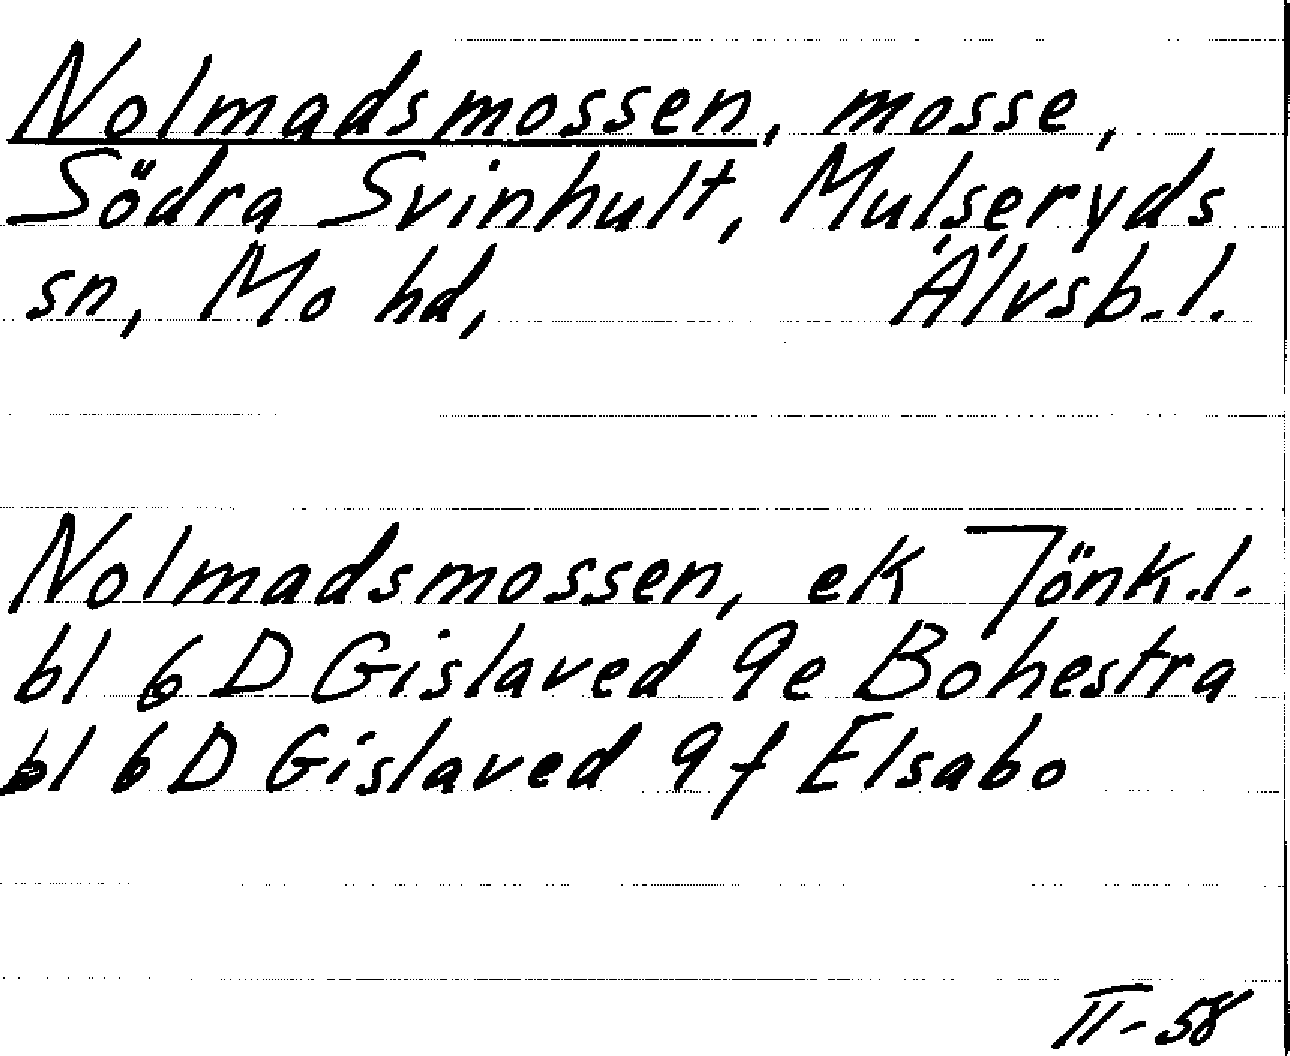 Nolmadsmossen, mosse,
Södra Svinhult, Mulseryds
sn, Mo hd, Älvsb.l.
Nolmadsmossen, ek Jönk.l.
bl 6 D Gislaved 9e Bohestra
bl 6 D Gislaved 9 f Elsabo
II-58